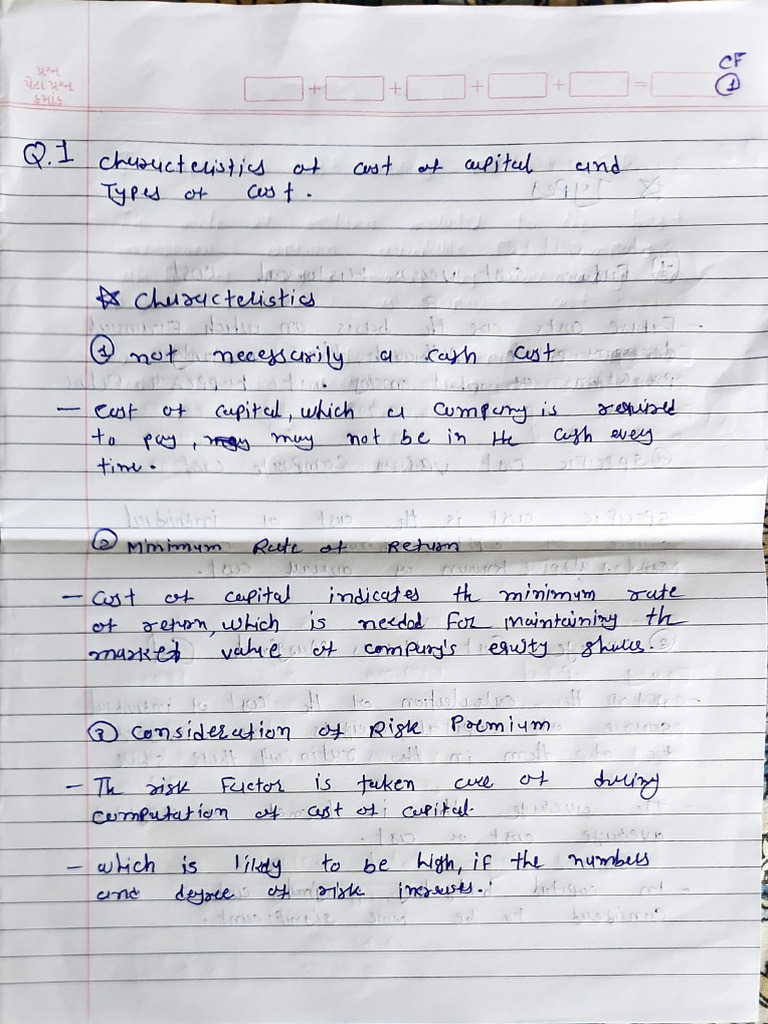 પ્રશ્ન
પેટા પ્રશ્ન
ક્રમાંક
+ + + + =
CF
1
Q.1 Characteristics of cost of capital and
Types of cost.
☆ Characteristics
① not necessarily a cash cost
- cost of capital, which a company is required
to pay, may may not be in the cash every
time.
② Minimum Rate of Return
- cost of capital indicates th minimum rate
of return, which is needed for maintaining th
market value of company's equity shares.
③ Consideration of Risk Premium
- Th risk Factor is taken care of during
computation of cost of capital.
- which is likely to be high, if the numbers
and degree of risk increases.